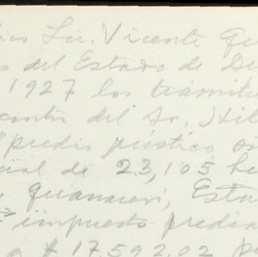 Lic. Vicente Gu
del Estado de Du
1927 los trámit
contra del Sr. Hil
"predio rústico
cial de 23,105 he
Guanaceví, Esta
impuesto predia
a $17592.02 p